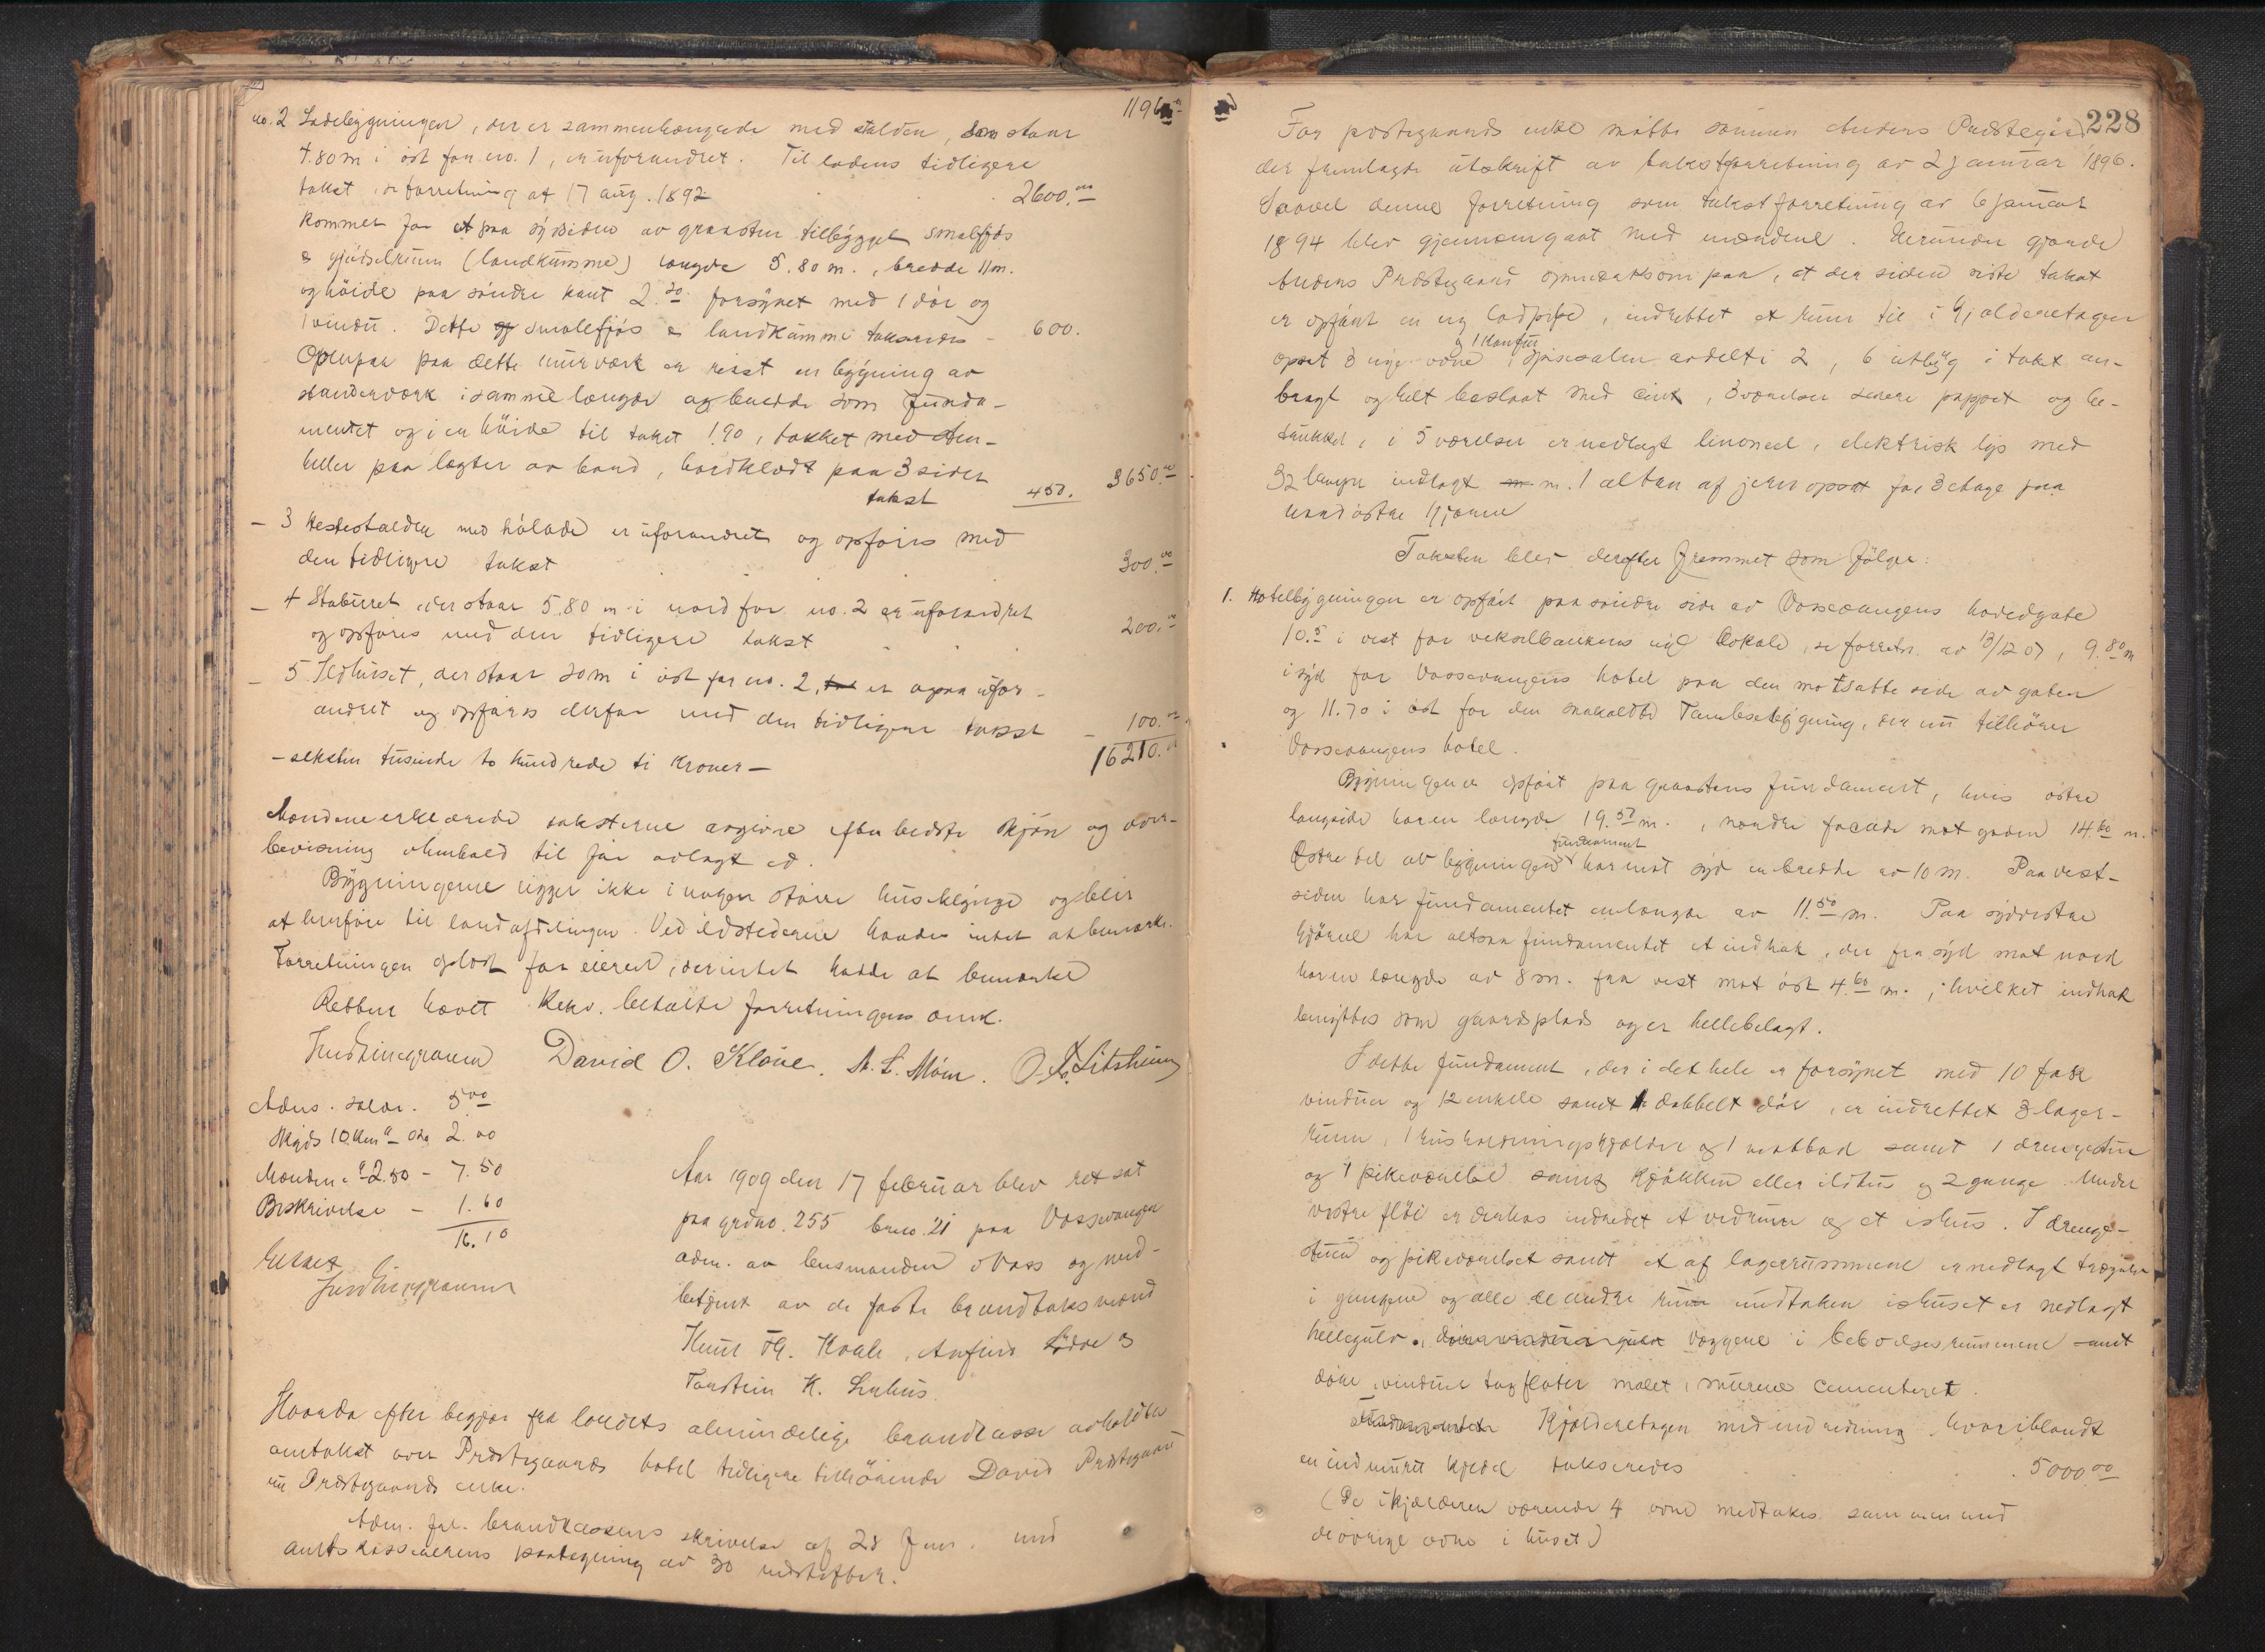 1196
no. 2 Ladebygningen, der er sammenhængende med stalden, som staar
4.80 m i öst for no. 1, er uforandret. Til ladens tidligere
takst, se forretning af 17 aug. 1892 2600.00
kommer for et paa sydsiden av graasten tilbygget smalefjös
& gjödselrum (landkumme) længde 5.80 m., bredde 11 m.
og höide paa söndre kant 2.20 forsynet med 1 dör og
1 vindu. Dette smalefjös & landkumme takseredes - 600.
Ovenpaa paa dette murværk er reist en bygning av
standerværk i samme længde og bredde som funda-
mentet og i en höide til taket 1.90, takket med sten-
heller paa lægter av bord, bordklædt paa 3 sider
takst 450. 3650.00
- 3 Hestestalden med hölade er uforandret og opföres med
den tidligere takst 300.00
- 4 Staburet, der staar 5.80 m i nord for no. 2 er uforandret
og opföres med den tidligere takst 200.00
- 5 Ildhuset, der staar 20 m i öst for no. 2, er ogsaa ufor-
andret og opföres derfor med den tidligere takst - 100.00
- seksten tusinde to hundrede ti kroner - 16210.00
Mændene erklærede taksterne avgivne efter bedste skjön og over-
bevisning i henhold til för avlagt ed.
Bygningerne ligger ikke i nogen större husklynge og blir
at henföre til landafdelingen. Ved ildstederne havdes intet at bemerke.
Forretningen oplæst for eieren, der intet hadde at bemerke
Retten hævet. Rekv. betalte forretningens omk.
David O. Kløve. A. L. Möen. O. Litsheim
Adms. salær. 5.00
Skyds 10 km a - 2.00
Mændene a 2.50 - 7.50
Beskrivelse - 1.60
16.10
Aar 1909 den 17 februar blev ret sat
paa grdno. 255 brno. 21 paa Vossevangen
adm. av lensmanden i Voss og med-
betjent av de faste brandtaksmænd
Knut Th. Kvale, Anfind Lödve &
Torstein K. Lukus.
Hvorda efter begjær fra landets almindelige brandkasse avholdtes
omtakst over Prestegaards hotel tidligere tilhörende David Prestegaard
nu Prestegaards enke.
Adm. frl. brandkassens skrivelse af 28 Jan. med
amtskassererens paategning av 30 næstefter.
228
For prestegaards enke mötte sönnen Anders Prestegård
der fremlagde utskrift av takstforretning av 2 januar 1896.
Saavel denne forretning som takstforretning av 6 januar
1894 blev gjennemgaat med mændene. Herunder gjorde
Anders Prestegaard opmerksom paa, at der siden siste takst
er opfört en ny ladpipe, indrettet et rum til i kjelderetagen
& 1 kontur
opsat 3 nye ovne, spisesalen avdelt i 2, 6 utbyg i taket an-
bragt og helt beslaat med sink, 3 værelser senere pappet og be-
trukket, i 5 værelser er nedlagt linoneel, elektrisk lys med
32 lamper indlagt m. 1 altan af jern opsat for 3 etage paa
nordöstre hjörne
Taksten blev derefter fremmet som fölger:
1. Hotelbygningen er opfört paa söndre side av Vossevangens hovedgate
10.5 i vest for vekselbankens nye lokale, se forretn. av 13/12 07, 9.80 m
i syd for Vossevangens hotel paa den motsatte side av gaten
og 11.70 i öst for den saakaldte bygning, der nu tilhörer
Vossevangens hotel.
Bygningen er opfört paa graastens fundament, hvis östre
langside har en længde 19.50 m., nordre facade mot gaden 14.60 m.
fundament
Östre del av bygningens har mot syd en bredde av 10 m. Paa vest-
siden har fundamentet en længde av 11.50 m. Paa sydvestre
hjörne har altsaa fundamentet et indhak, der fra syd mot nord
har en længde av 8 m. fra vest mot öst 4.60 m., hvilket indhak
benyttes som gaardsplads og er hellebelagt.
I dette fundament, der i det hele er forsynet med 10 fask
vinduer og 12 enkle samt 1 dobbelt dör, er indrettet 3 lager-
rum, 1 husholdningskjelder og 1 matbod samt 1 drengestue
og 1 pikeværelse samt kjökken eller ildhus og 2 gange. Under
vestre flöi er derhos indredet et vedrum og et ishus. I drenge-
stuen og pikeværelset samt et af lagerrummene er nedlagt trægulv
i gangene og alle de andre rum undtaken ishuset er nedlagt
hellegulv. væggene i beboelsesrummene samt
döre, vinduer tagflater malet, murene cementeret.
Kjelderetagen med indredning hvoriblandt
en indmuret kjedel takseredes 5000.00
(De i kjelderen værende 4 ovne medtakes sammen med
de övrige ovne i huset)